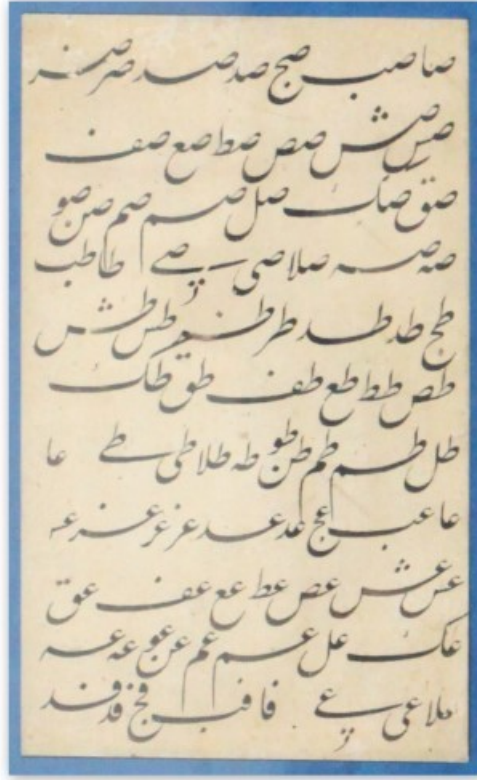 صا صب صج صد صد صر صر
صس صش صص صط صع صف
صق صک صل صم صم صن صو
صه صه صلا صی صے طا طب
طج طد طد طر طر طس طش
طص طط طع طف طق طک
طل طم طم طن طو طه طلا طی طے عا
عا عب عج عد عد عر عر عه
عس عش عص عط عع عف عق
عک عل عم عم عن عو عه عه
علا عی عے فا فب فج فد فد